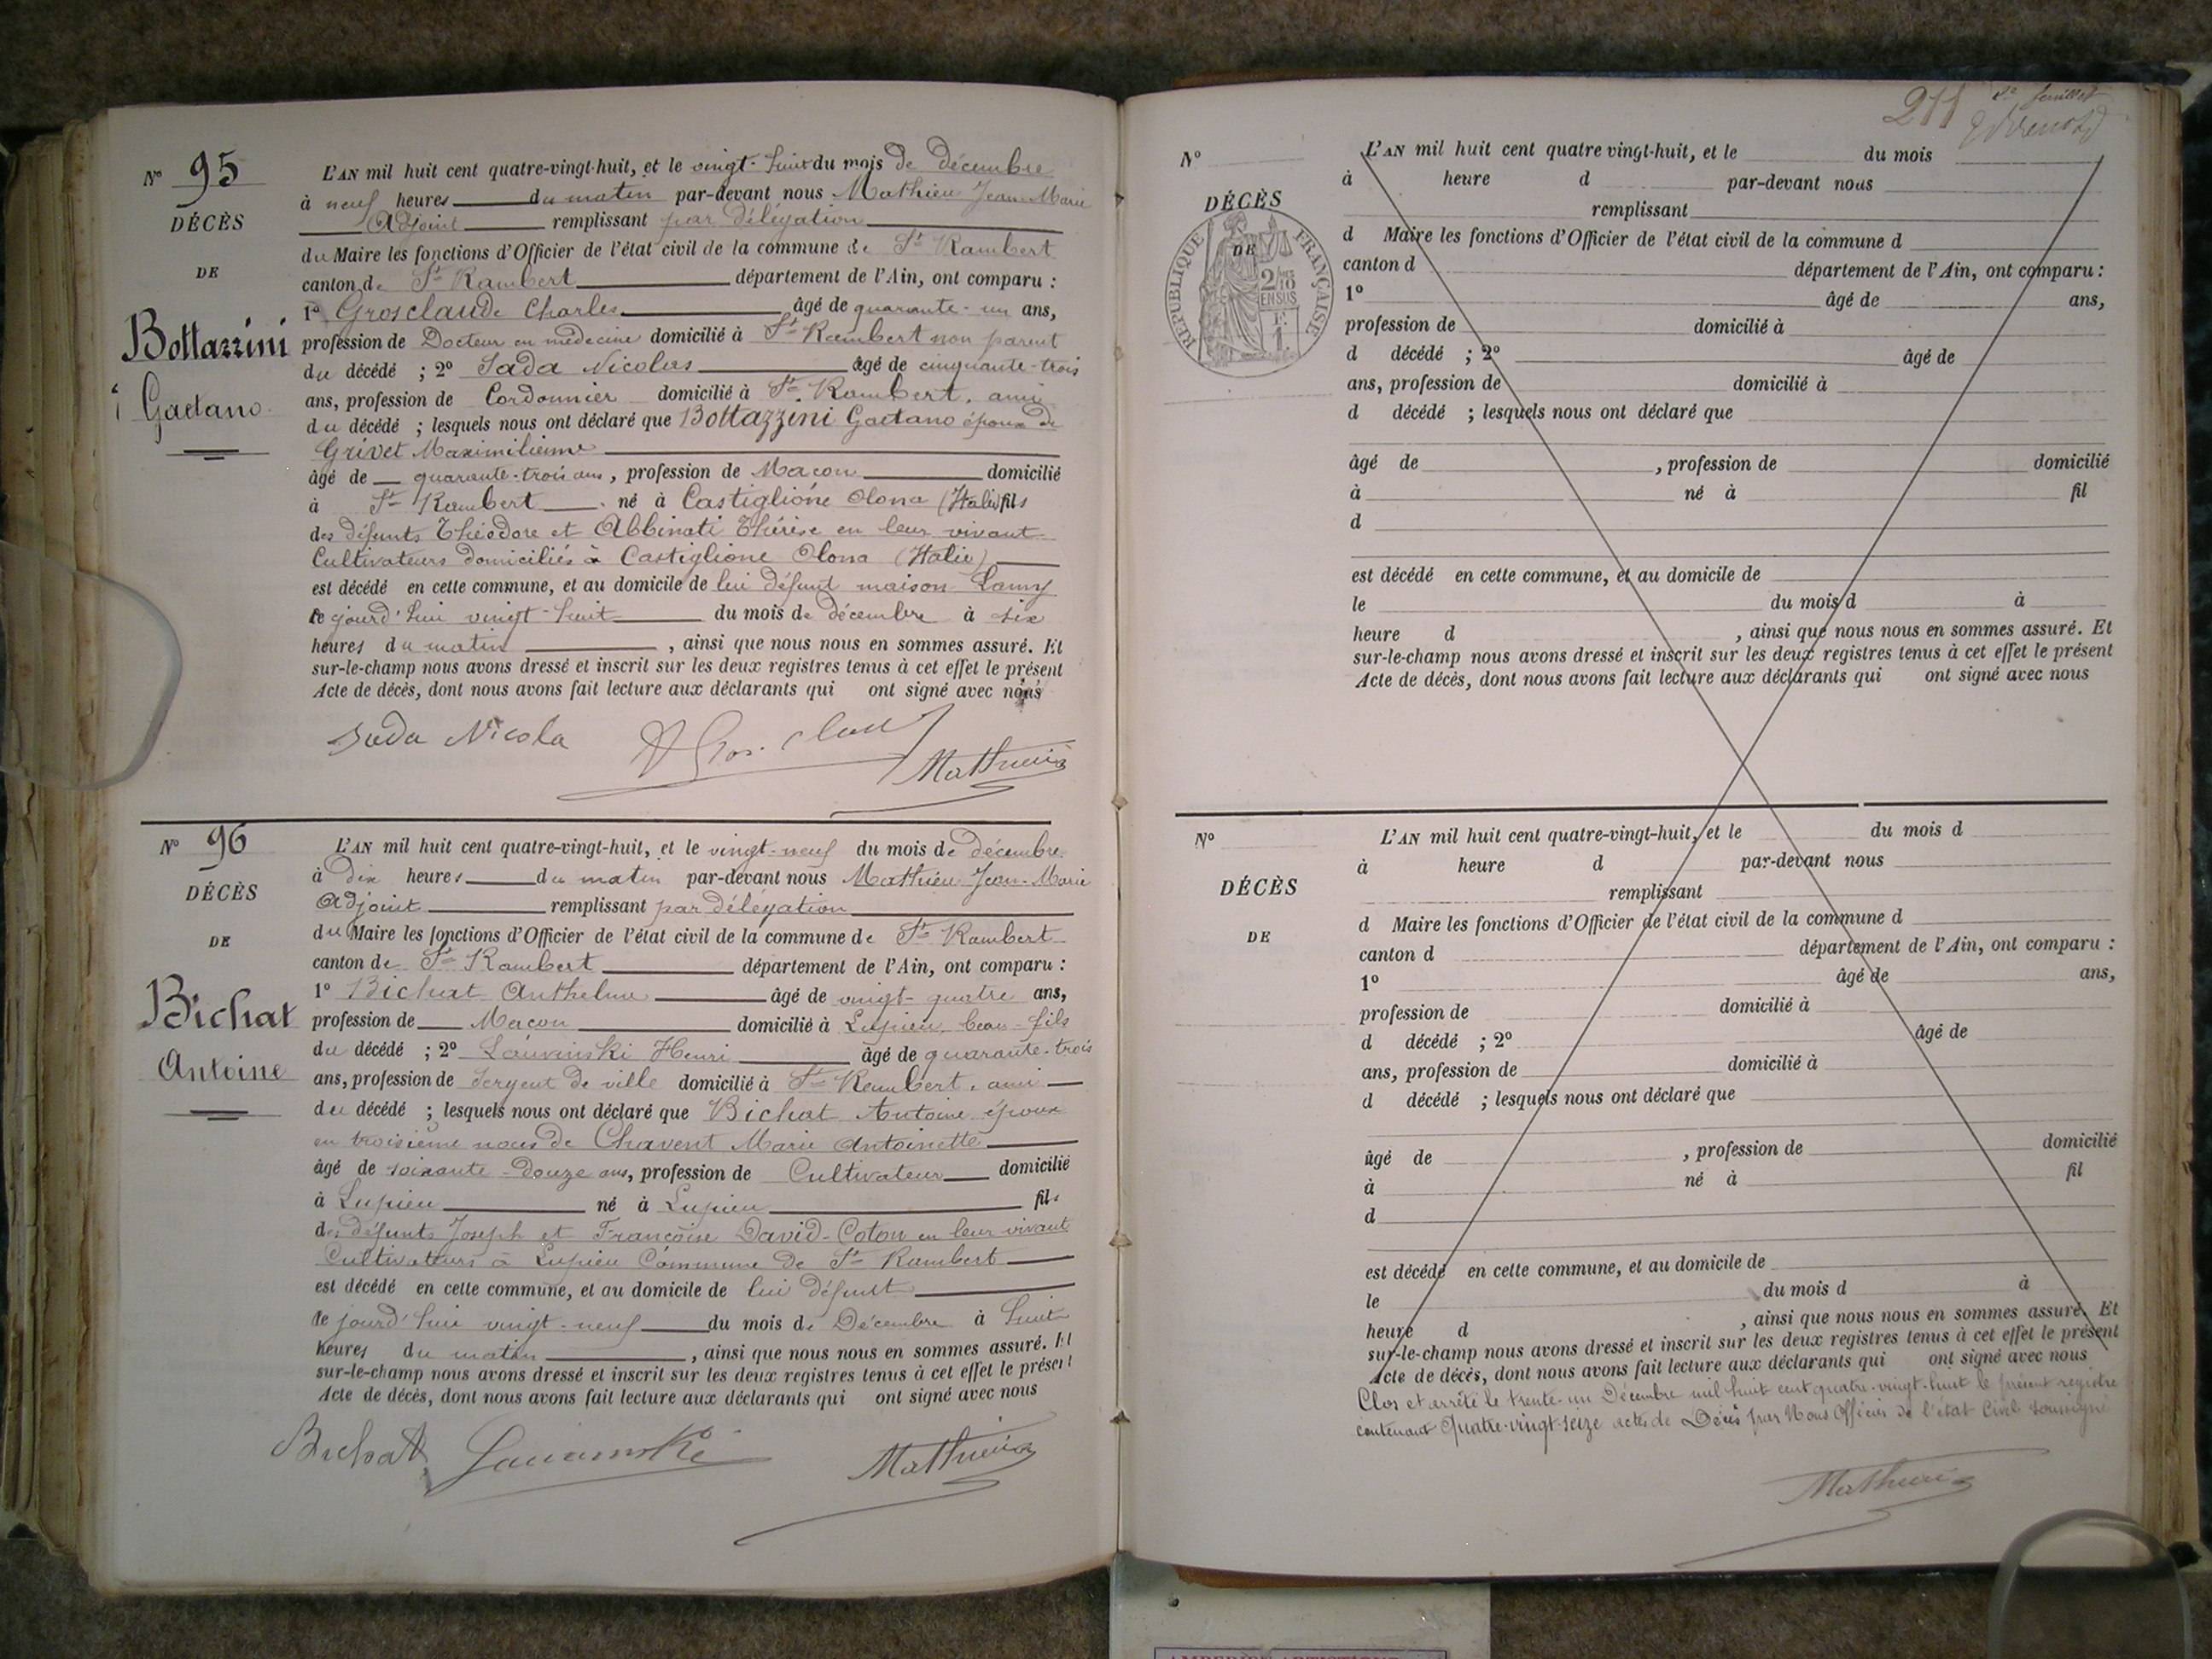 N° 95
DÉCÈS
DE
Bottazzini
Gaetano
L'AN mil huit cent quatre-vingt-huit, et le vingt-huit du mois de décembre
à neuf heures du matin par-devant nous Mathieu Jean-Marie
Adjoint remplissant par délégation
du Maire les fonctions d'Officier de l'état civil de la commune de St Rambert
canton de St Rambert département de l'Ain, ont comparu :
1° Grosclaude Charles âgé de quarante-un ans,
profession de Docteur en médecine domicilié à St Rambert non parent
du décédé ; 2° Sada Nicolas âgé de cinquante-trois
ans, profession de Cordonnier domicilié à St Rambert, ami
du décédé ; lesquels nous ont déclaré que Bottazzini Gaetano époux de
Grivet Maximilienne
âgé de quarante-trois ans, profession de Maçon domicilié
à St Rambert né à Castiglione Olona (Italie) fils
des défunts Théodore et Abbinati Thérèse en leur vivant
Cultivateurs domiciliés à Castiglione Olona (Italie)
est décédé en cette commune, et au domicile de lui défunt maison Lamy
ce jourd'hui vingt-huit du mois de décembre à six
heures du matin, ainsi que nous nous en sommes assuré. Et
sur-le-champ nous avons dressé et inscrit sur les deux registres tenus à cet effet le présent
Acte de décès, dont nous avons fait lecture aux déclarants qui ont signé avec nous
Sada Nicola
Mathieu
N° 96
DÉCÈS
DE
Bichat
Antoine
L'AN mil huit cent quatre-vingt-huit, et le vingt-neuf du mois de décembre
à dix heures du matin par-devant nous Mathieu Jean-Marie
Adjoint remplissant par délégation
du Maire les fonctions d'Officier de l'état civil de la commune de St Rambert
canton de St Rambert département de l'Ain, ont comparu :
1° Bichat Anthelme âgé de vingt-quatre ans,
profession de Maçon domicilié à Lupieu, beau-fils
du décédé ; 2° Henri âgé de quarante-trois
ans, profession de Sergent de ville domicilié à St Rambert, ami
du décédé ; lesquels nous ont déclaré que Bichat Antoine époux
en troisième noces de Chavent Marie Antoinette
âgé de soixante-douze ans, profession de Cultivateur domicilié
à Lupieu né à Lupieu fils
des défunts Joseph et Françoise David-Coton en leur vivant
Cultivateurs à Lupieu Commune de St Rambert
est décédé en cette commune, et au domicile de lui défunt
ce jourd'hui vingt-neuf du mois de Décembre à huit
heures du matin, ainsi que nous nous en sommes assuré. Et
sur-le-champ nous avons dressé et inscrit sur les deux registres tenus à cet effet le présent
Acte de décès, dont nous avons fait lecture aux déclarants qui ont signé avec nous
Bichat
Mathieu
211
feuillet
N°
DÉCÈS
DE
RÉPUBLIQUE FRANÇAISE
2/10 EN SUS
L'AN mil huit cent quatre vingt-huit, et le du mois
à heure d par-devant nous
remplissant
d Maire les fonctions d'Officier de l'état civil de la commune d
canton d département de l'Ain, ont comparu :
1° âgé de ans,
profession de domicilié à
d décédé ; 2° âgé de
ans, profession de domicilié à
d décédé ; lesquels nous ont déclaré que
âgé de , profession de domicilié
à né à fil
d
est décédé en cette commune, et au domicile de
le du mois d à
heure d , ainsi que nous nous en sommes assuré. Et
sur-le-champ nous avons dressé et inscrit sur les deux registres tenus à cet effet le présent
Acte de décès, dont nous avons fait lecture aux déclarants qui ont signé avec nous
N°
DÉCÈS
DE
L'AN mil huit cent quatre-vingt-huit, et le du mois d
à heure d par-devant nous
remplissant
d Maire les fonctions d'Officier de l'état civil de la commune d
canton d département de l'Ain, ont comparu :
1° âgé de ans,
profession de domicilié à
d décédé ; 2° âgé de
ans, profession de domicilié à
d décédé ; lesquels nous ont déclaré que
âgé de , profession de domicilié
à né à fil
d
est décédé en cette commune, et au domicile de
le du mois d à
heure d , ainsi que nous nous en sommes assuré. Et
sur-le-champ nous avons dressé et inscrit sur les deux registres tenus à cet effet le présent
Acte de décès, dont nous avons fait lecture aux déclarants qui ont signé avec nous
Clos et arrêté le trente-un Décembre mil huit cent quatre-vingt-huit le présent registre
contenant Quatre-vingt-seize actes de Décès par Nous Officier de l'état Civil soussigné
Mathieu